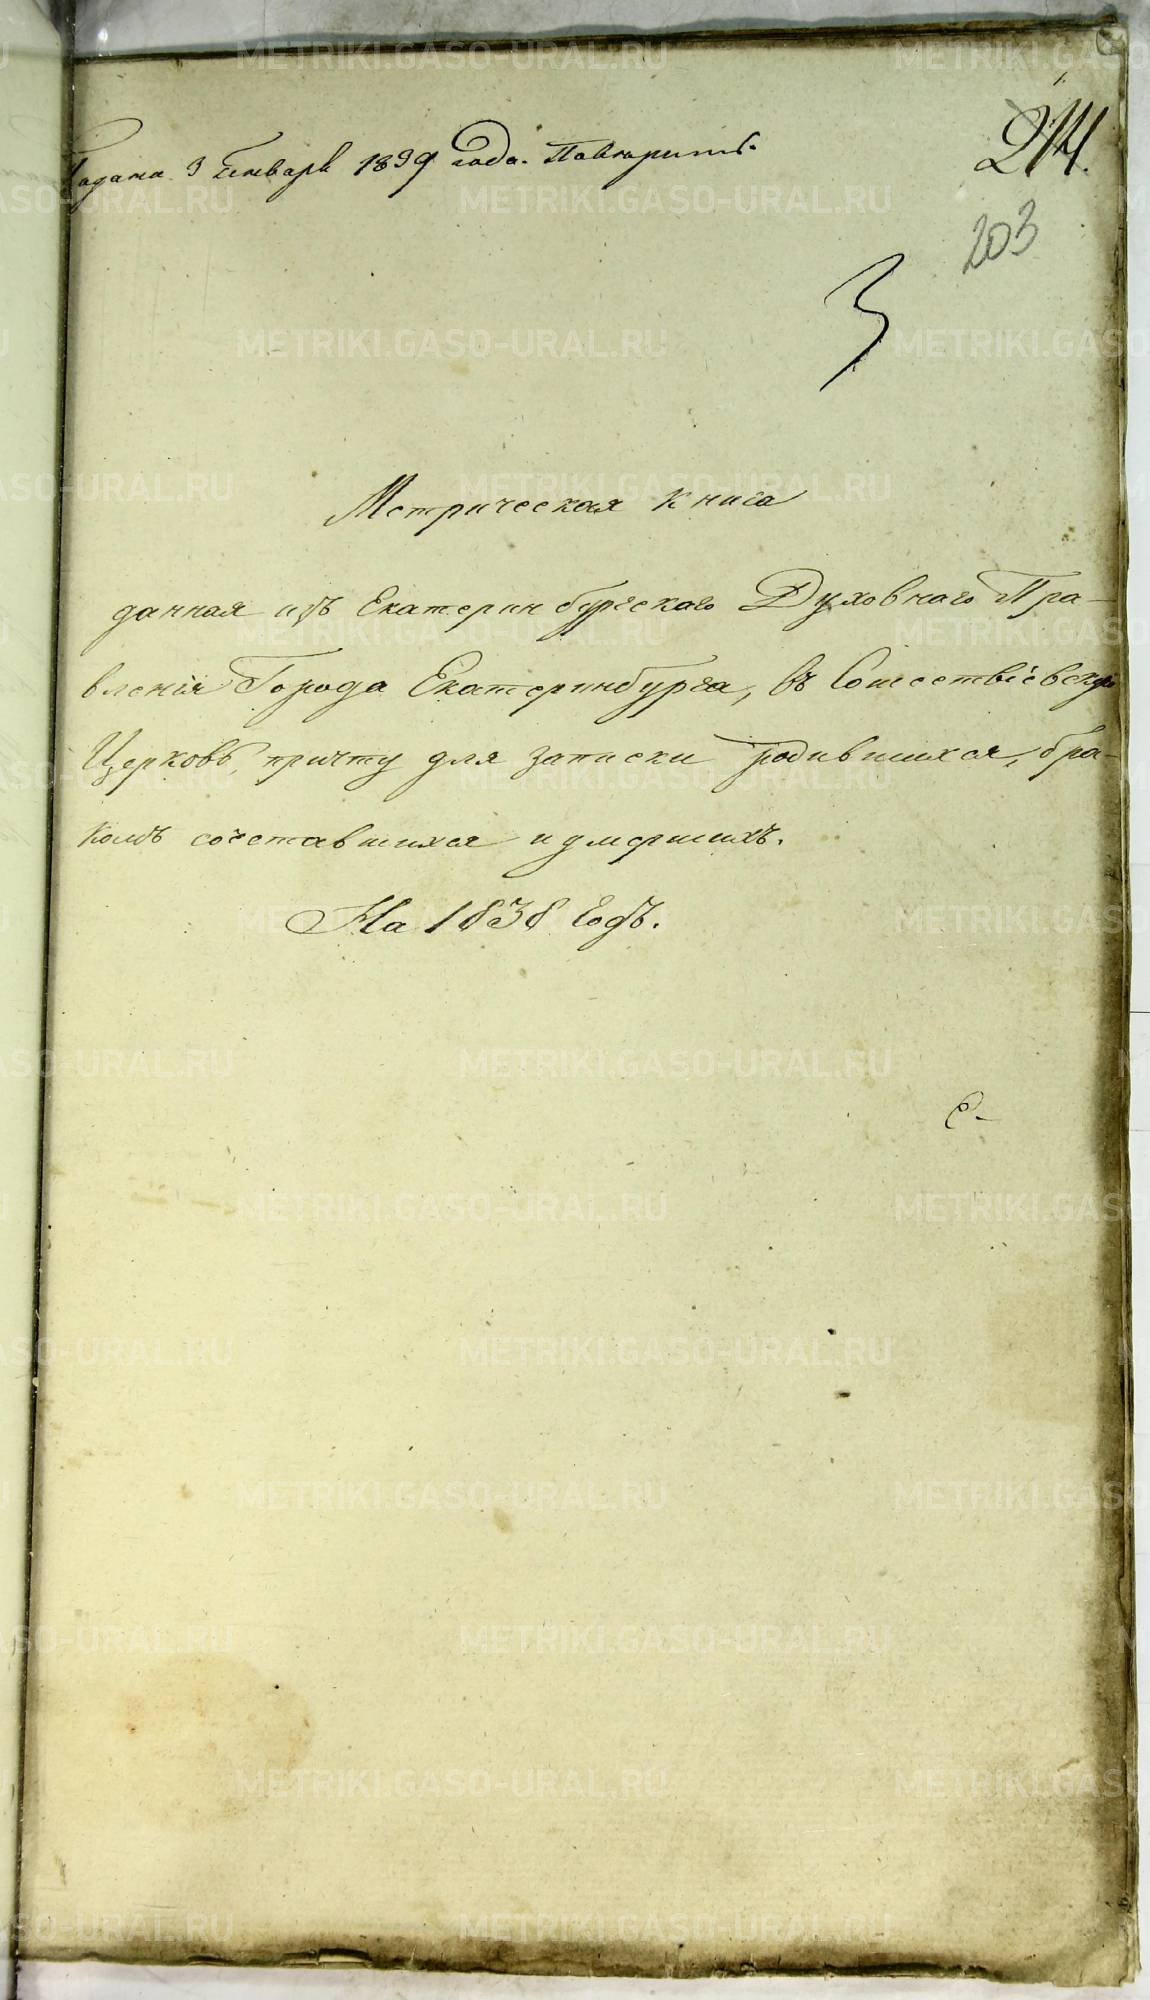 Подана 3 Генваря 1839 года. Повторить.
214.
203
3
Метрическая книга
данная изъ Екатеринбургскаго Духовнаго Пра-
вленія Города Екатеринбурга, въ Сошествіевскую
Церковь, причту для записки родившихся, бра-
комъ сочетавшихся и умершихъ.
На 1838 Годъ.